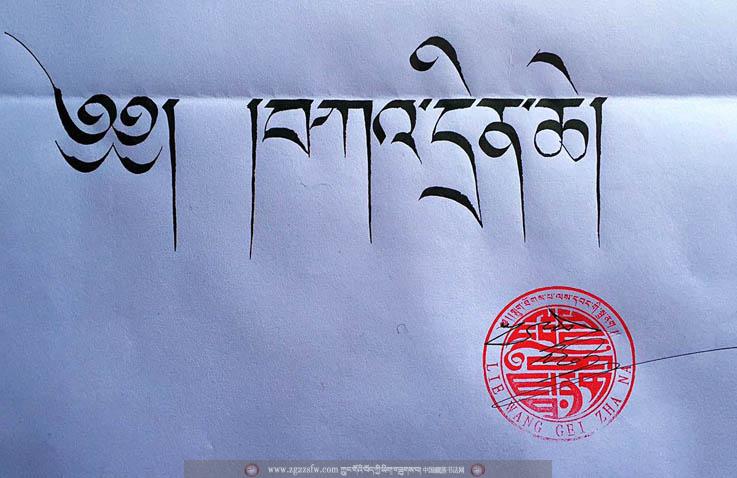 ༄༅། །བཀའ་དྲིན་ཆེ།
LIE WANG GEI ZHA NA
www.zgzzsfw.com 中国藏族书法网